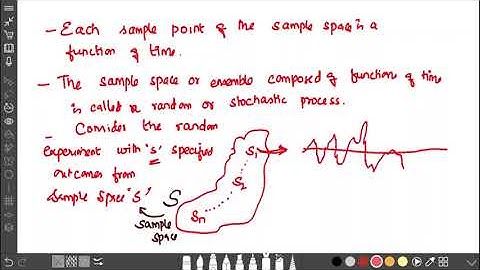 - Each sample point of the sample space is a
function of time.
- The sample space or ensemble composed of function of time
is called a random or stochastic process.
- Consider the random
experiment with 's' specified
outcomes from
sample space 'S'
S
sample
space
S1
S2
Sn